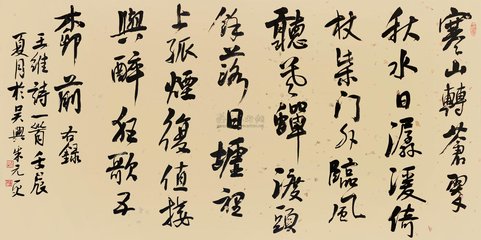 寒山轉蒼翠
秋水日潺湲倚
杖柴門外臨風
聽暮蟬渡頭
餘落日墟里
上孤煙復值接
輿醉狂歌五
柳前 右錄
王維詩一首壬辰
夏月於吳興朱元更